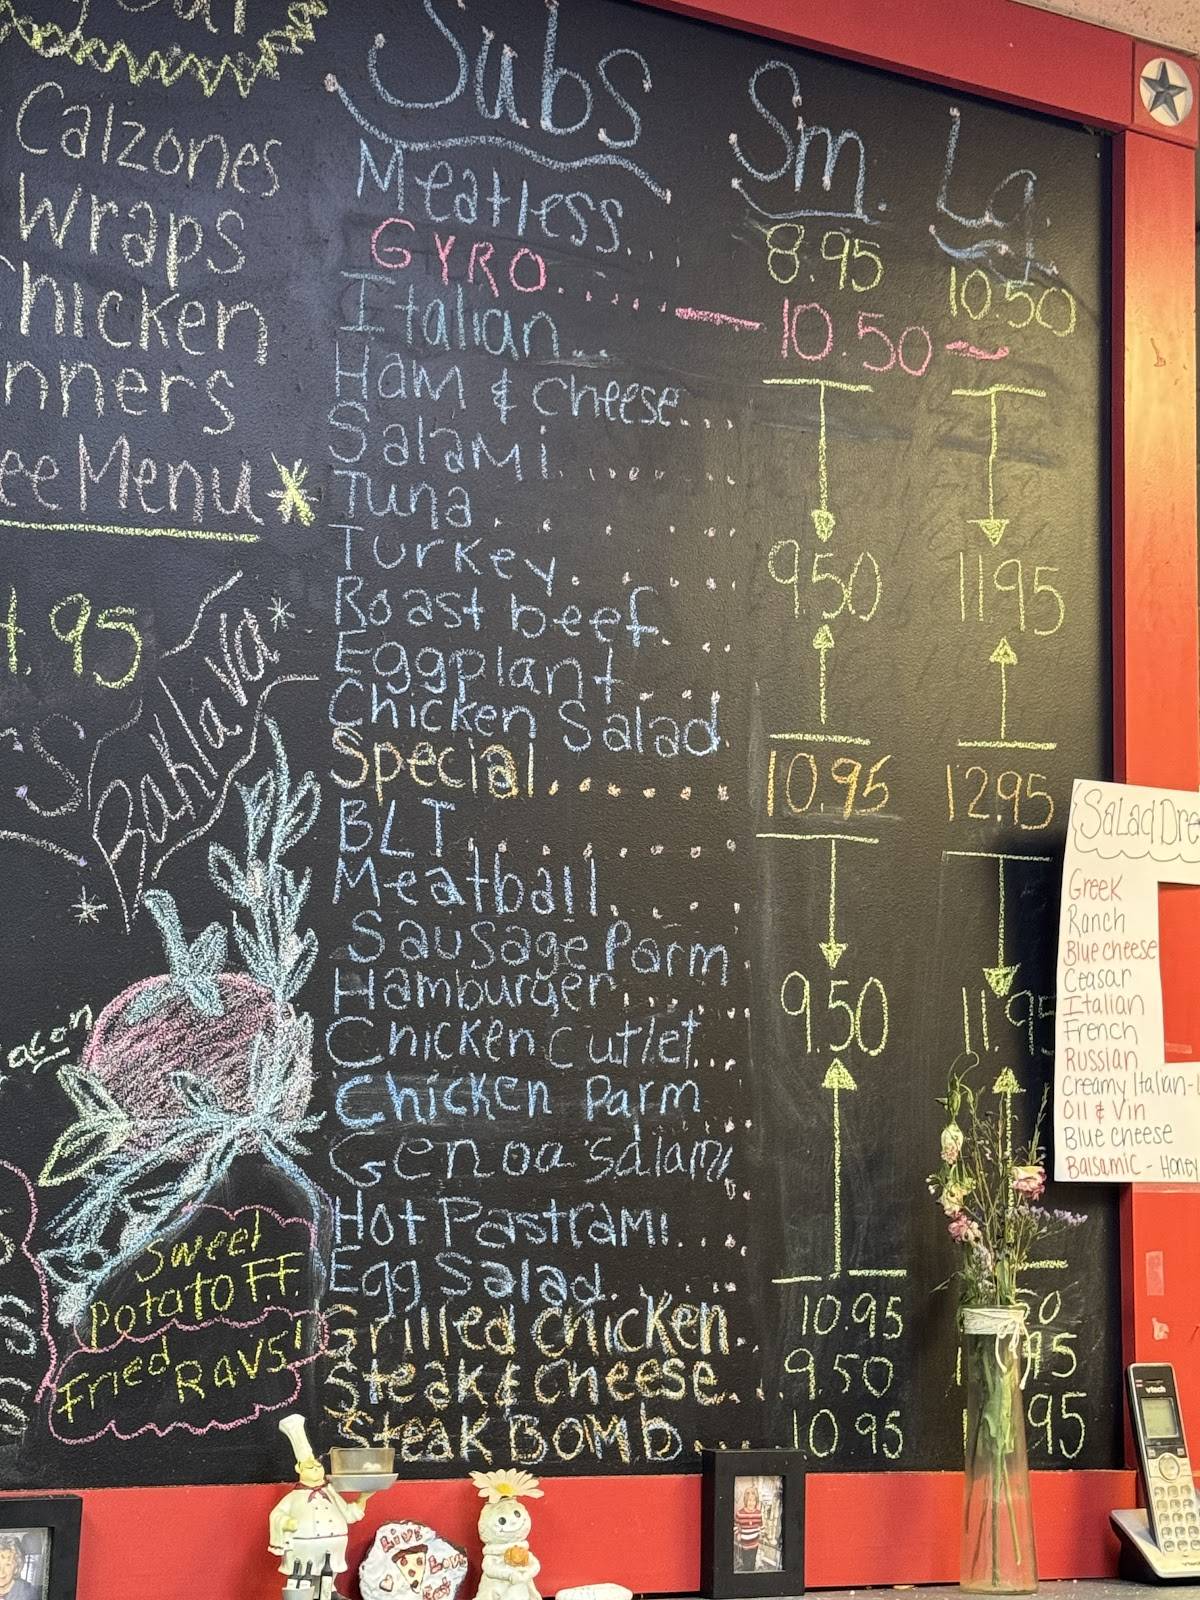 Calzones
Wraps
Chicken
nners
ee Menu
.95
Baklava
acon
Sweet
Potato F.F.
Fried RAVS!
Subs Sm. Lg.
Meatless.... 8.95 10.50
GYRO...... — 10.50 —
Italian...
Ham & cheese...
Salami.....
Tuna.....
Turkey..... 9.50 11.95
Roast beef...
Eggplant...
Chicken Salad.
Special...... 10.95 12.95
BLT......
Meatball....
Sausage Parm
Hamburger.... 9.50 11.95
Chicken Cutlet...
Chicken Parm
Genoa Salami
Hot Pastrami...
Egg Salad.....
Grilled chicken.. 10.95
Steak & cheese.. 9.50
STEAK BOMB.... 10.95
Salad Dre
Greek
Ranch
Blue cheese
Ceasar
Italian
French
Russian
Creamy Italian-
Oil & Vin
Blue cheese
Balsamic - Honey
LIVE
LOVE
vtech